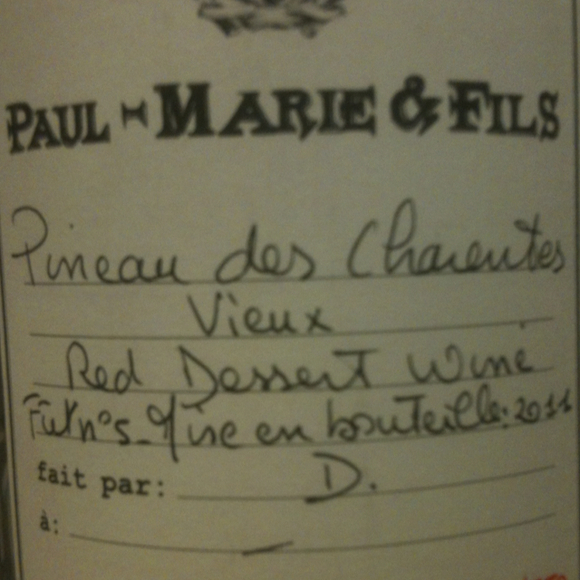 PAUL-MARIE & FILS
Pineau des Charentes
Vieux
Red Dessert Wine
Fût n°5 - Mise en bouteille: 2011
fait par: D.
à: —